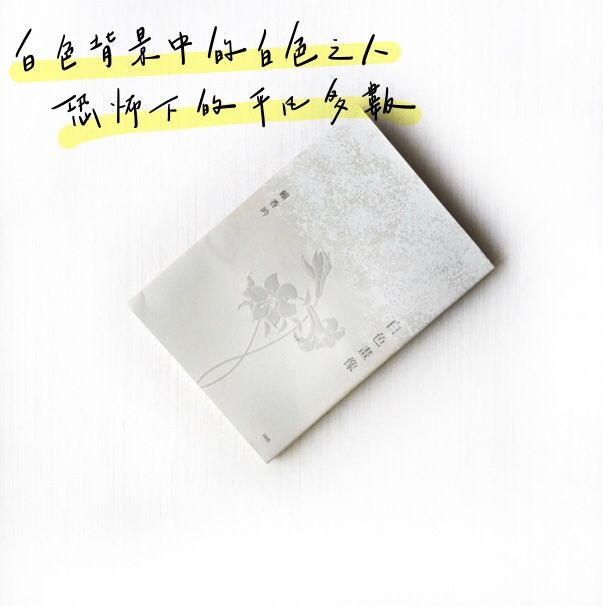 白色背景中的白色之人
恐怖下的平凡多數
賴香吟
白色畫像